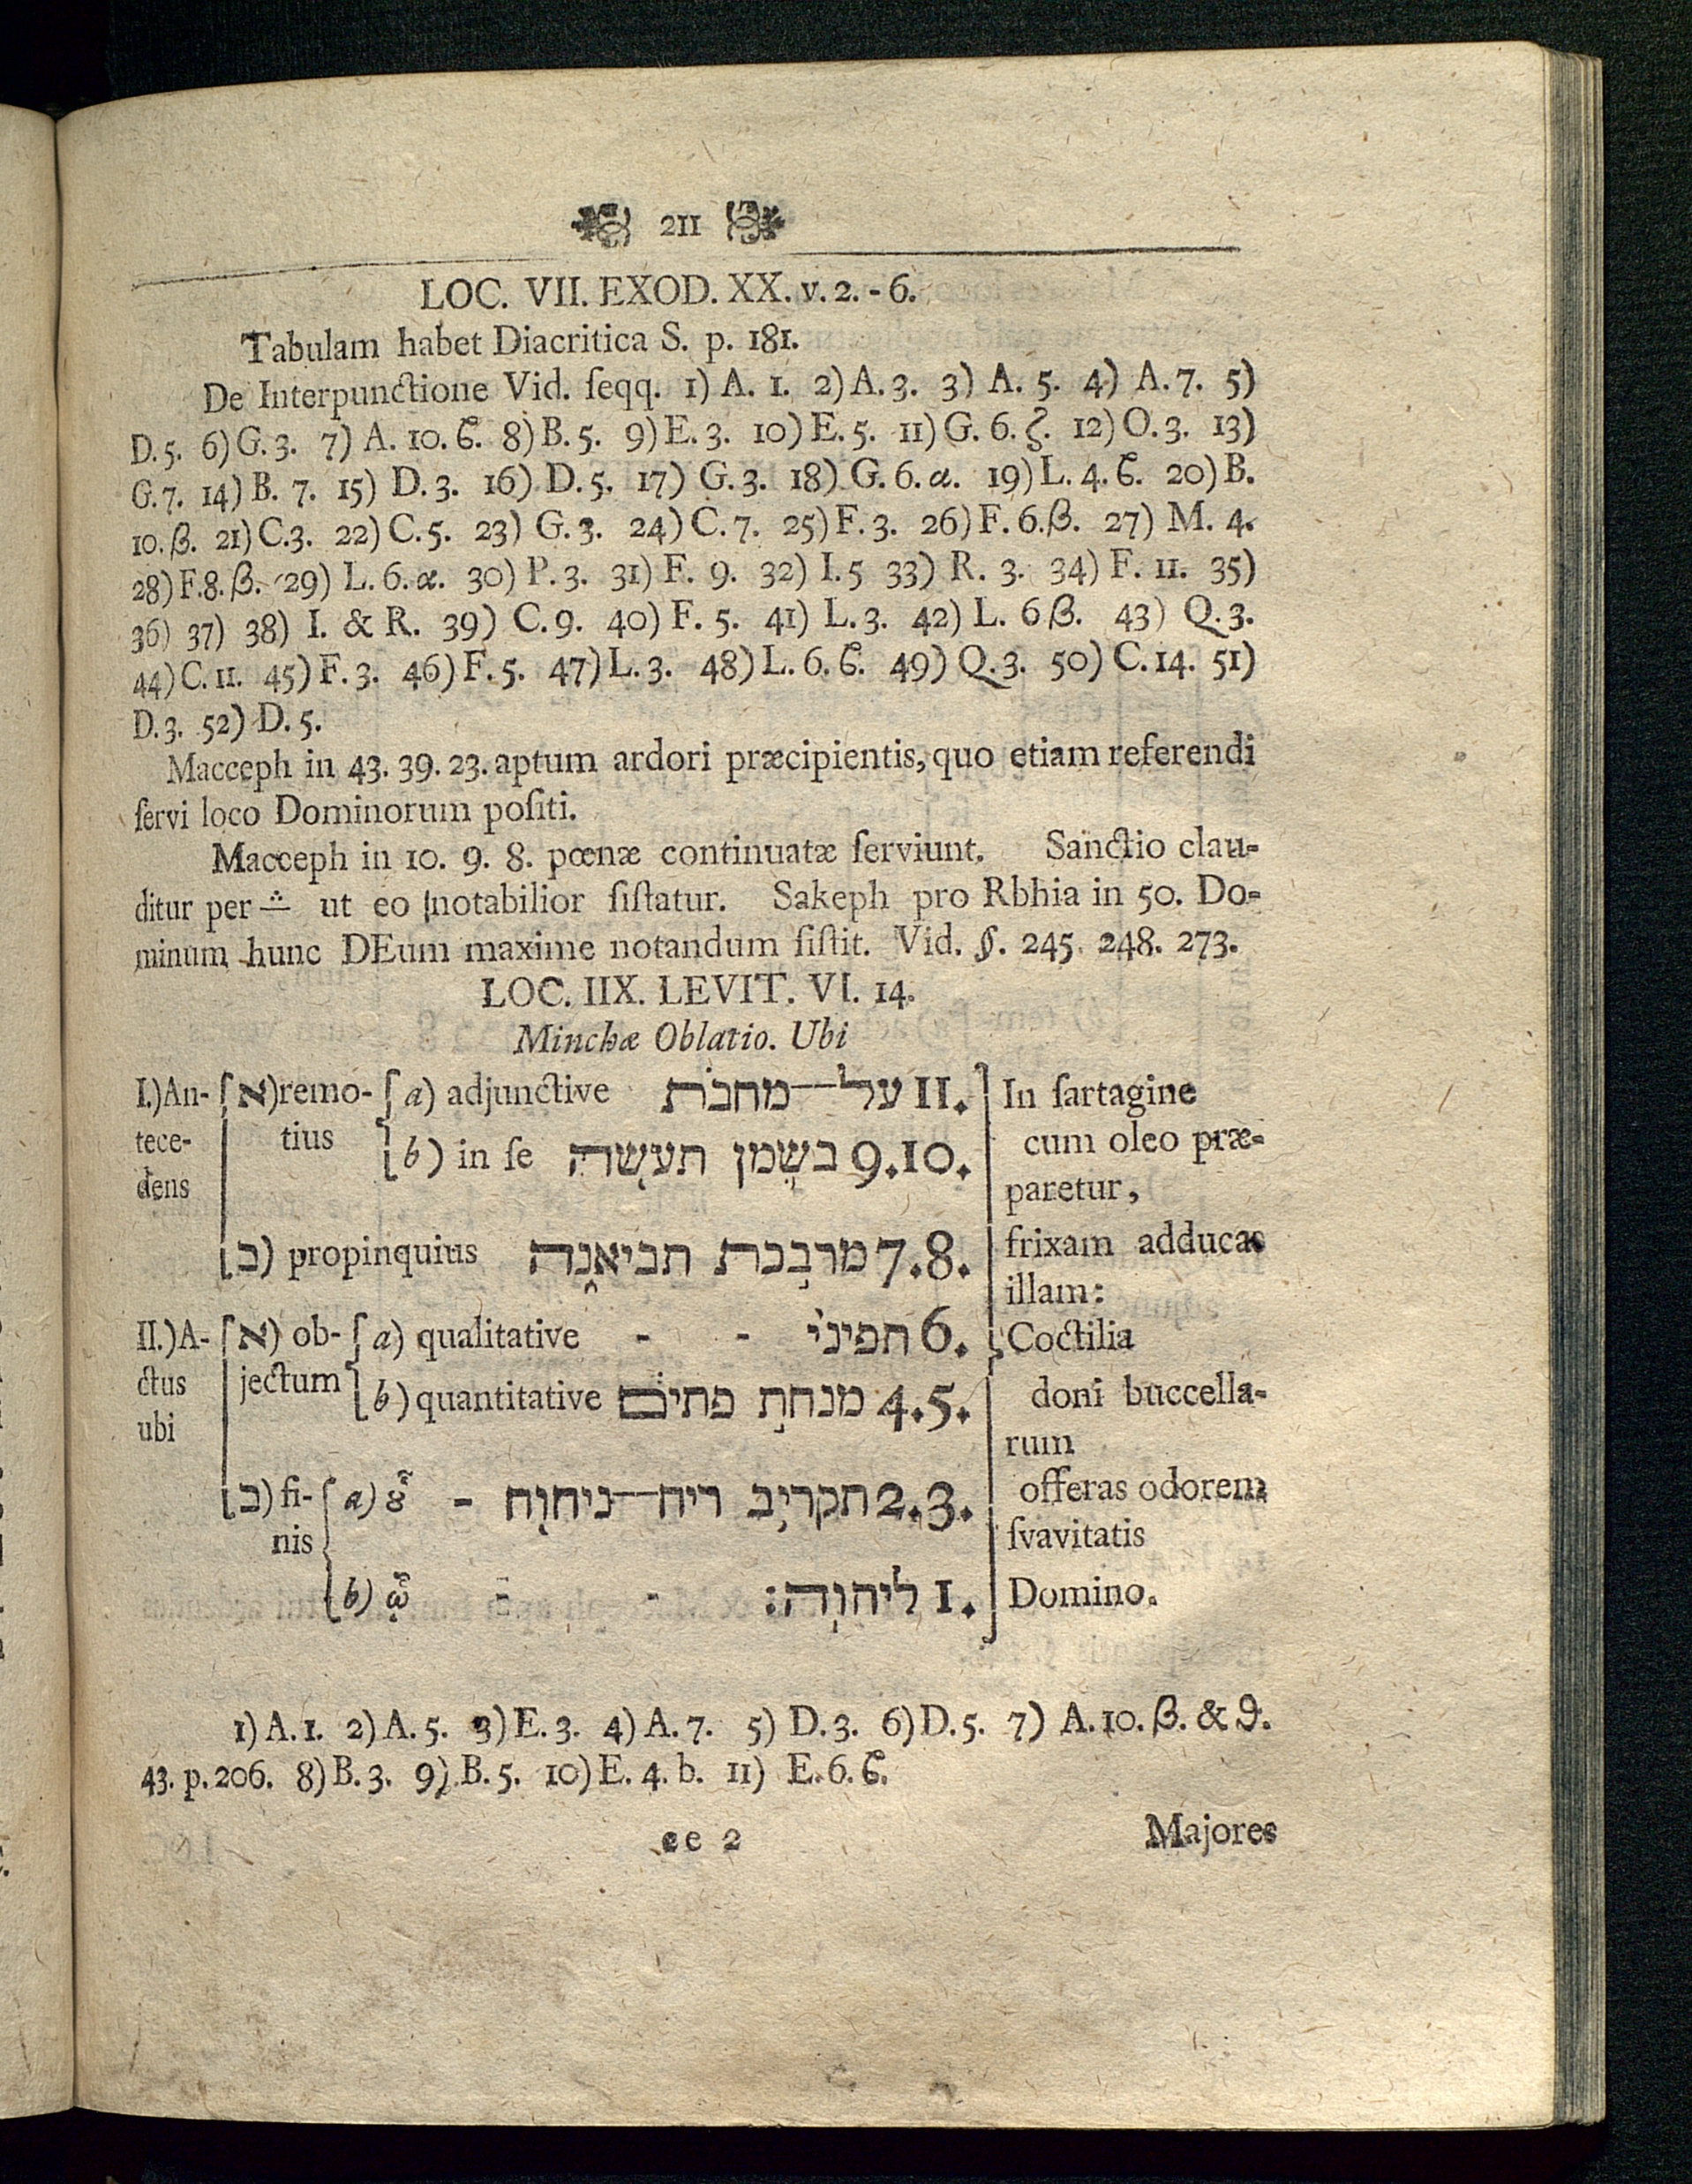 211
LOC. VII. EXOD. XX. v. 2. - 6.
Tabulam habet Diacritica S. p. 181.
De Interpunctione Vid. ſeqq. 1) A. 1. 2) A. 3. 3) A. 5. 4) A. 7. 5)
D. 5. 6) G. 3. 7) A. 10. ϐ. 8) B. 5. 9) E. 3. 10) E. 5. 11) G. 6. ζ. 12) O. 3. 13)
G. 7. 14) B. 7. 15) D. 3. 16) D. 5. 17) G. 3. 18) G. 6. α. 19) L. 4. ϐ. 20) B.
10. β. 21) C. 3. 22) C. 5. 23) G. 3. 24) C. 7. 25) F. 3. 26) F. 6. β. 27) M. 4.
28) F. 8. β. 29) L. 6. α. 30) P. 3. 31) F. 9. 32) I. 5 33) R. 3. 34) F. 11. 35)
36) 37) 38) I. & R. 39) C. 9. 40) F. 5. 41) L. 3. 42) L. 6 β. 43) Q. 3.
44) C. 11. 45) F. 3. 46) F. 5. 47) L. 3. 48) L. 6. ϐ. 49) Q. 3. 50) C. 14. 51)
D. 3. 52) D. 5.
Macceph in 43. 39. 23. aptum ardori præcipientis, quo etiam referendi
ſervi loco Dominorum poſiti.
Macceph in 10. 9. 8. pœnæ continuatæ ſerviunt. Sanctio clau-
ditur per ut eo notabilior ſiſtatur. Sakeph pro Rbhia in 50. Do-
minum hunc DEum maxime notandum ſiſtit. Vid. §. 245. 248. 273.
LOC. IIX. LEVIT. VI. 14.
Minchæ Oblatio. Ubi
I.) An- א) remo- a) adjunctive על—מחבת 11. In ſartagine
tece- tius b) in ſe בשמן תעשה 9. 10. cum oleo præ-
dens paretur,
ב) propinquius מרבכת תביאנה 7. 8. frixam adducas
illam:
II.) A- א) ob- a) qualitative - - תפיני 6. Coctilia
ctus jectum b) quantitative מנחת פתים 4. 5. doni buccella-
ubi rum
ב) fi- a) ȣ̃ - תקריב ריח—ניחוח 2. 3. offeras odorem
nis ſvavitatis
b) ᾧ - - ליהוה: 1. Domino.
1) A. 1. 2) A. 5. 3) E. 3. 4) A. 7. 5) D. 3. 6) D. 5. 7) A. 10. β. & ϑ.
43. p. 206. 8) B. 3. 9) B. 5. 10) E. 4. b. 11) E. 6. ϐ.
ee 2 Majores